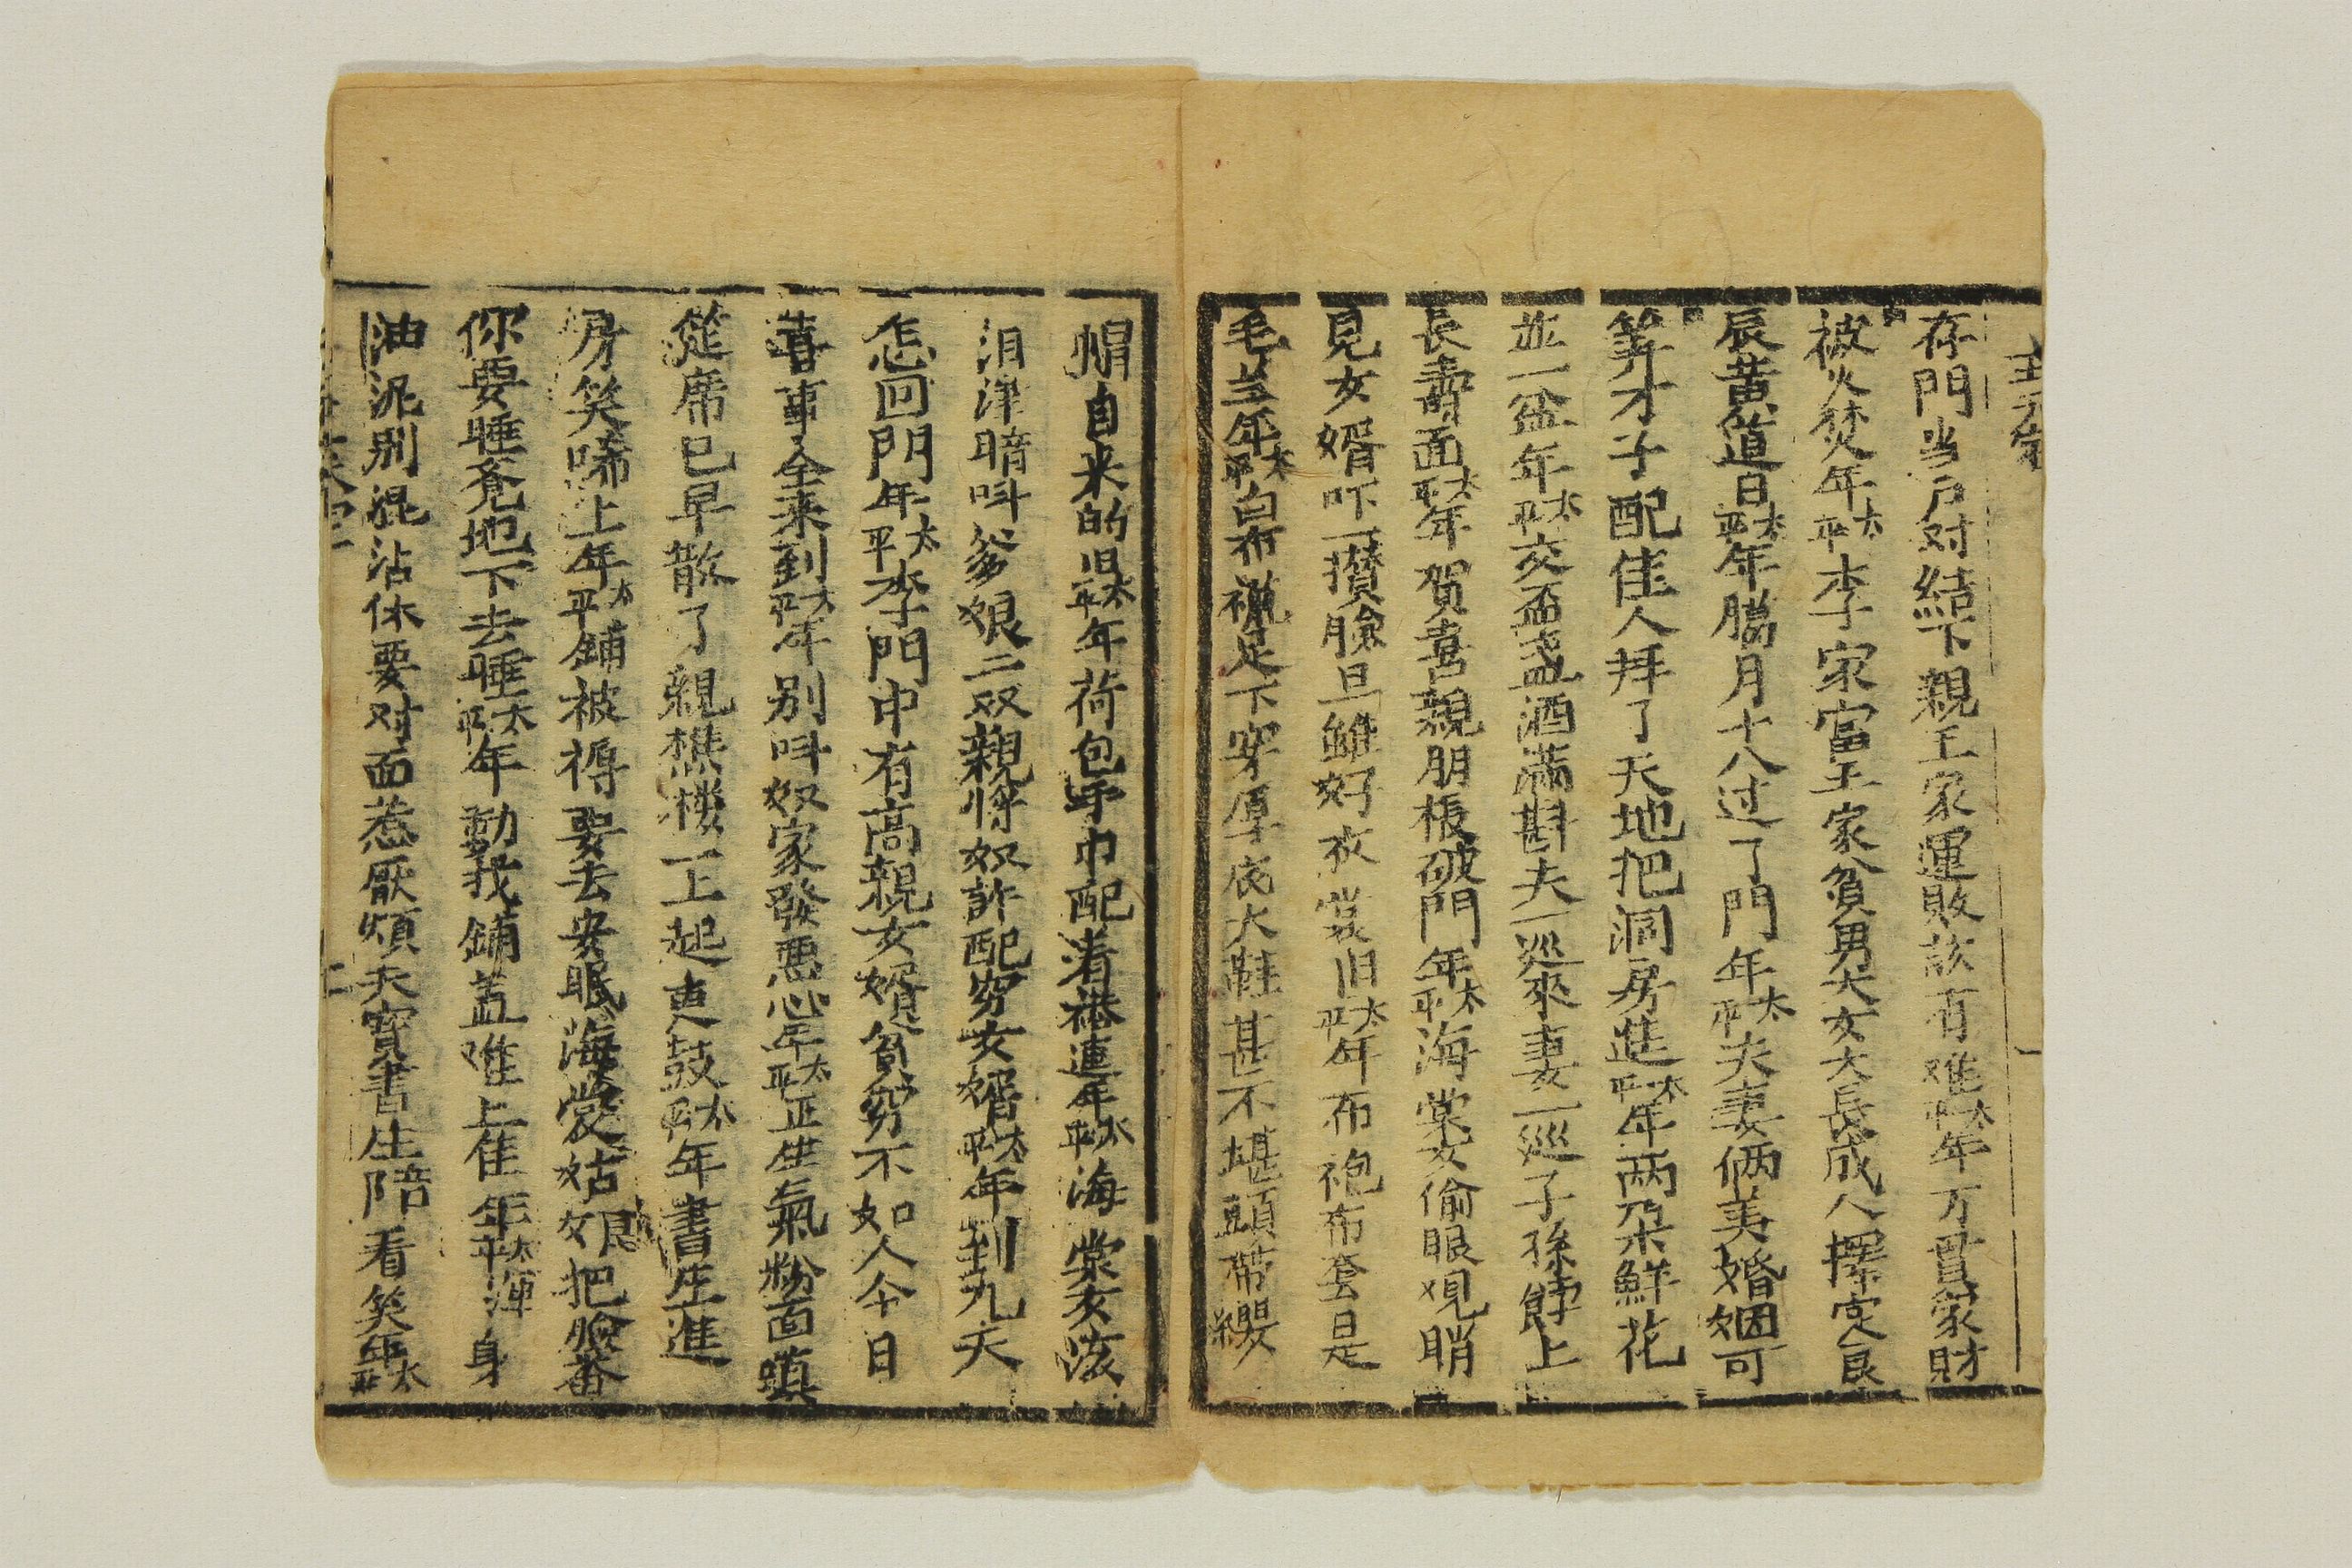 存門当户对結下親王家運敗該有难太平年万貫家財
被火焚年太平李家富王家貧男大女大長成人擇定良
辰黄道日太平年臈月十八过了門年太平夫妻俩美婚姻可
筭才子配佳人拜了天地把洞房進太平年两朵鮮花
並一盆年太平交盃盏酒满斟夫一巡來妻一巡子孫餑上
長壽面太平年賀喜親朋板破門年太平海棠女偷眼観睄
見女婿吓一攅臉旦雖好衣裳旧太平年布袍布套是
毛兰年太平白布襪足下穿厚底大鞋甚不堪頭帶纓
帽自来的旧太平年荷包手巾配着褡連年太平海棠女滚
泪津暗呌爹娘二双親将奴許配穷女婿太平年到九天
怎回門年太平李門中有高親女婿貧穷不如人今日
喜事全来到太平年别呌奴家發恶心年太平正生氣粉面嗔
筵席已早散了親樵楼上起更鼓太平年書生進
房笑嘻上年太平鋪被褥要去安眠海棠姑娘把臉番
你要睡覺地下去睡太平年動我鋪盖难上难年太平渾身
油泥别混沾休要对面惹厭煩天寳書生陪看笑年太平
二